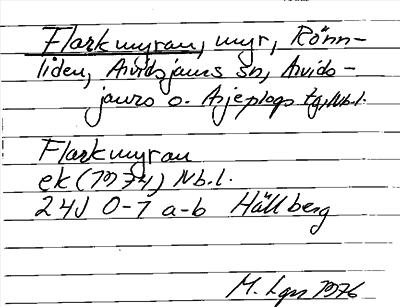 Flarkmyran, myr, Rönn-
liden, Arvidsjaurs sn, Arvids-
jaurs o. Arjeplogs tg, Nb.l.
Flarkmyran
ek (1974) Nb.l.
24J 0-1 a-b Hällberg
M. Lgn 1976